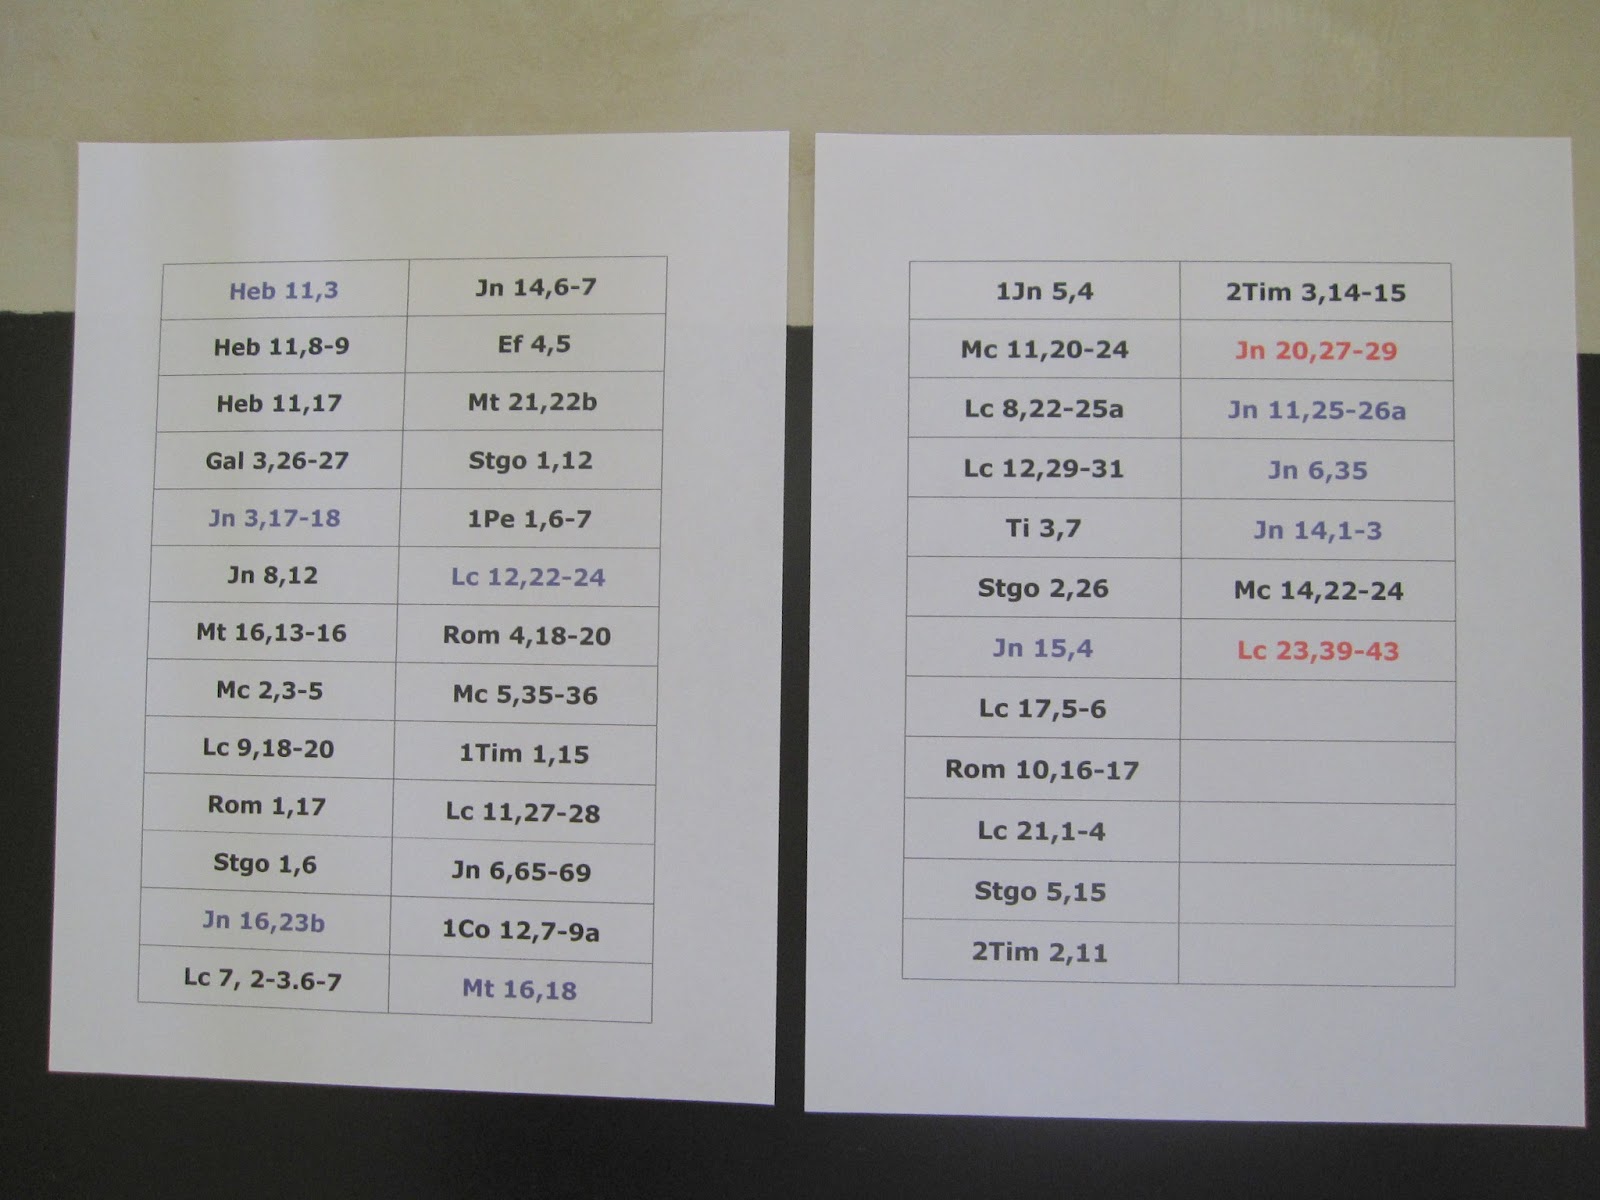 Heb 11,3 Jn 14,6-7
Heb 11,8-9 Ef 4,5
Heb 11,17 Mt 21,22b
Gal 3,26-27 Stgo 1,12
Jn 3,17-18 1Pe 1,6-7
Jn 8,12 Lc 12,22-24
Mt 16,13-16 Rom 4,18-20
Mc 2,3-5 Mc 5,35-36
Lc 9,18-20 1Tim 1,15
Rom 1,17 Lc 11,27-28
Stgo 1,6 Jn 6,65-69
Jn 16,23b 1Co 12,7-9a
Lc 7, 2-3.6-7 Mt 16,18
1Jn 5,4 2Tim 3,14-15
Mc 11,20-24 Jn 20,27-29
Lc 8,22-25a Jn 11,25-26a
Lc 12,29-31 Jn 6,35
Ti 3,7 Jn 14,1-3
Stgo 2,26 Mc 14,22-24
Jn 15,4 Lc 23,39-43
Lc 17,5-6
Rom 10,16-17
Lc 21,1-4
Stgo 5,15
2Tim 2,11